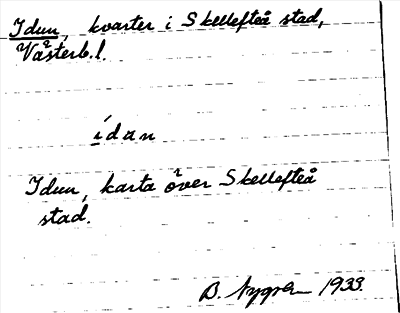 Idun, kvarter i Skellefteå stad,
Västerb.l.
ídan
Idun, karta över Skellefteå
stad.
B. Nygren 1933.